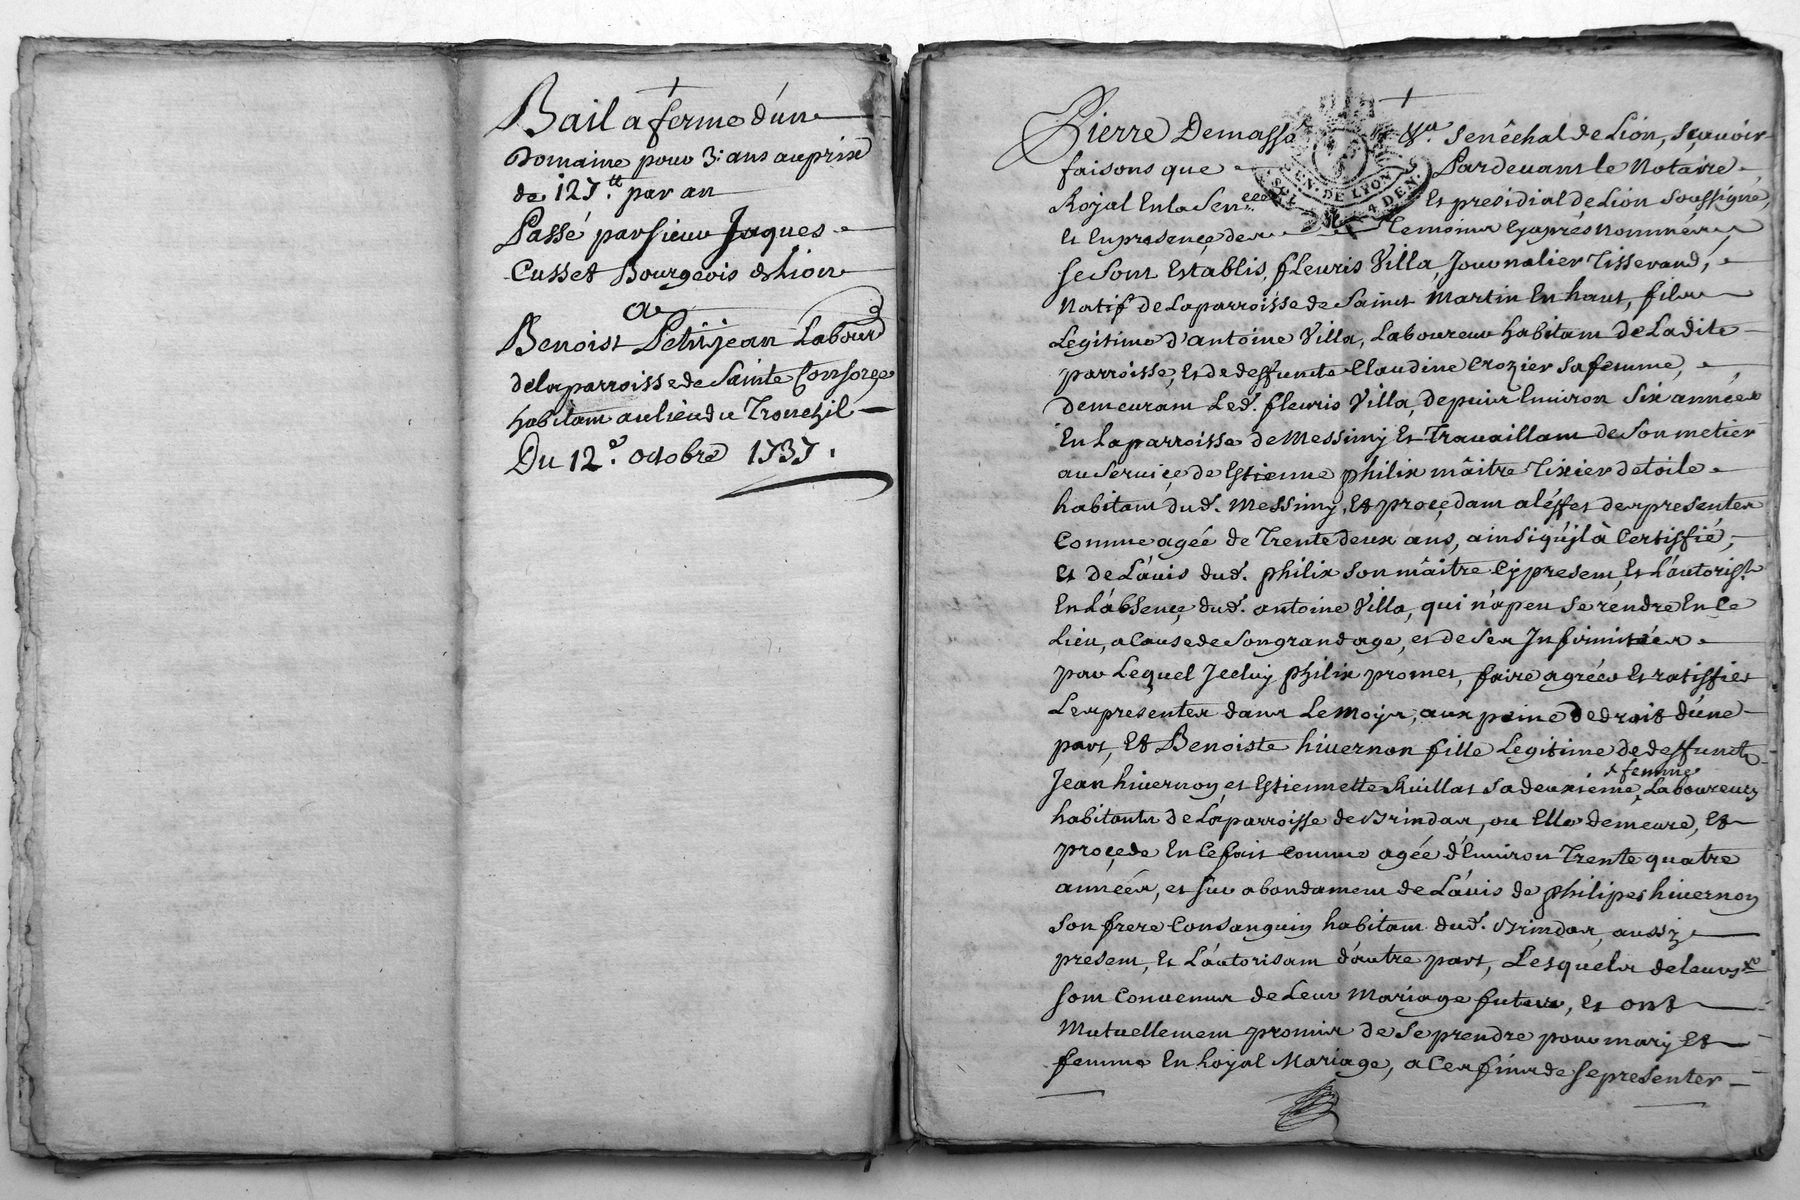 Bail a ferme d'un
Domaine pour 3: ans au prix
de 127.tt par an
Passé par sieur Jaques
Cusset Bourgeois de Lion
a
Benoist Petitjean Labour
de la parroisse de Sainte Consorce
habitant au lieu du
Du 12e. octobre 1737.
Pierre Demassо &a. Senêchal de Lion, sçavoir
faisons que Pardevant le Notaire
Royal En la Sen.eee Et presidial de Lion soussigné,
Et En presençe des temoins Cy aprés nommés
se sont Establis, fleuris Villa, Journalier Tisserand,
Natif de La parroisse de Saint Martin En haut, fils
Legitime d'antoine Villa, Laboureur habitant de Ladite
parroisse, Et de deffunte Claudine Crozier sa femme,
demeurant Led. fleuris Villa, depuis Environ Six années
En La parroisse de Messimy Et Travaillant de Son metier
au Serviçe de Estienne philix mâitre Tixier de toile
habitant dud. Messimy, Et proçedant a l'éffet des presentes
Comme agée de Trente deux ans, ainsi qu'jl à Certiffié,
Et de L'auis dud. philix son mâitre Cy present, Et L'autorist
En L'absençe dud. antoine Villa, qui n'a peu se réndre En Ce
Lieu, a Cause de Son grand age, et de Ses Jnfirmitées
par Lequel Jceluy philix promet, faire agréer Et ratiffier
Les presentes dans Le Moys, aux peine de droit d'une
part, Et Benoiste hivernon fille Legitime de deffunt
Jean hivernon et Estiennette Ruillat sa deuxiéme Laboureurs
+ femme
habitants de La parroisse de Brindas, ou Elle demeure, Et
proçede En Ce fait comme agée d'Environ Trente quatre
années, et sur abondament de L'auis de philipes hivernon
son frere Consanguin habitant dud. Brindas, aussy
present, Et L'autorisant d'autre part, Lesquels de leurs
sont Convenus de Leur Mariage futur, Et ont
Mutuellement promis de Se prendre pour mary Et
femme En Loyal Mariage, a Ces fins de se presenter
SEN. DE LYON
4 DEN.